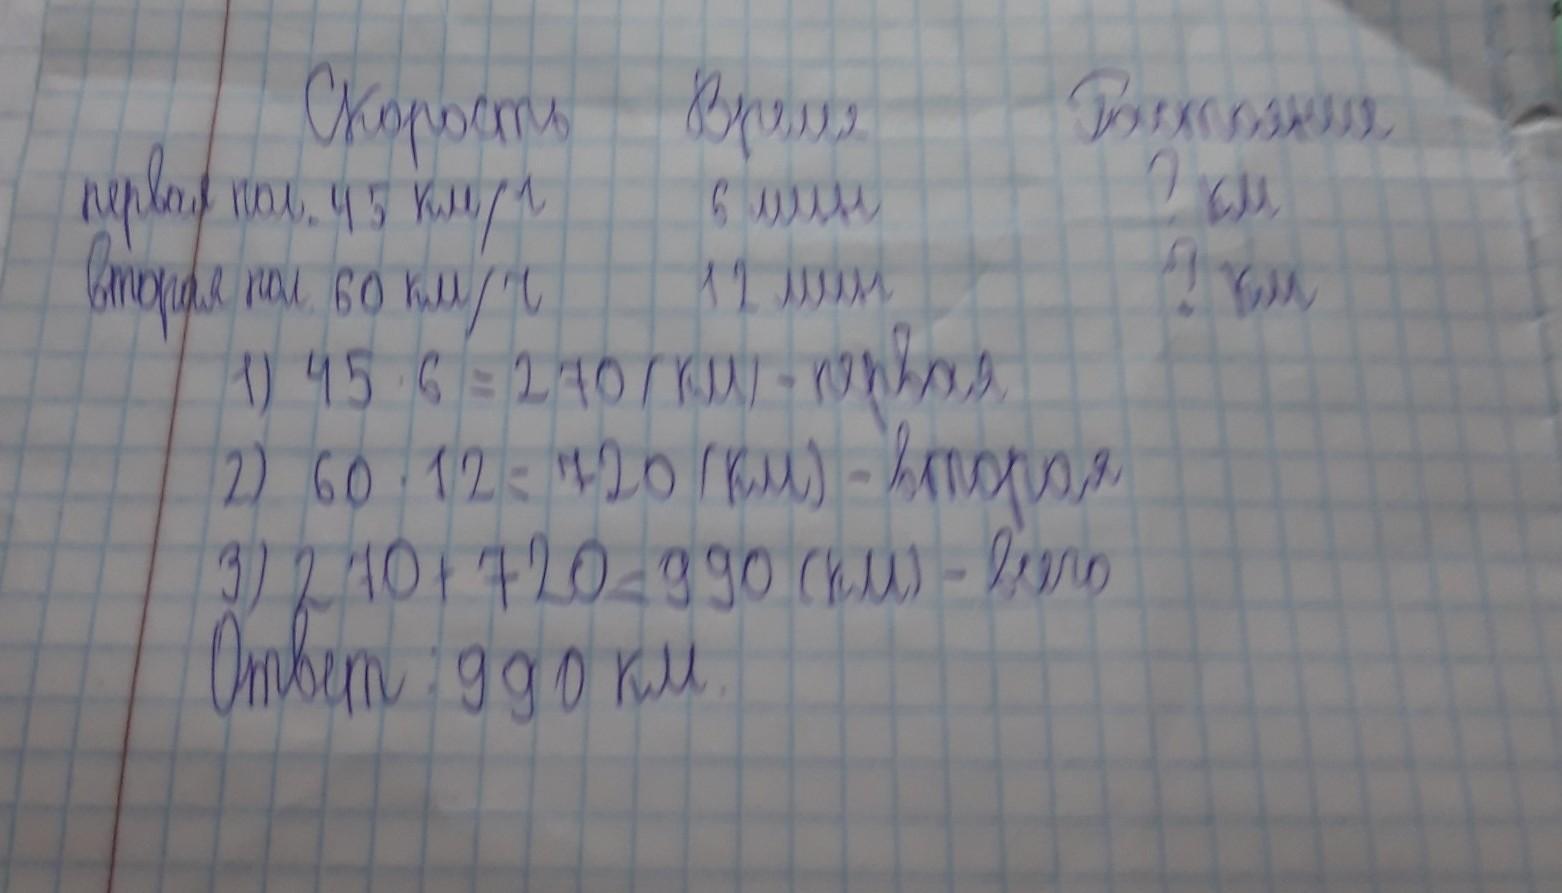 Скорость Время Расстояния
первая пол. 45 км/ч 6 мин ? км
вторая пол. 60 км/ч 12 мин ? км
1) 45 · 6 = 270 (км) - первая
2) 60 · 12 = 720 (км) - вторая
3) 270 + 720 = 990 (км) - всего
Ответ : 990 км.